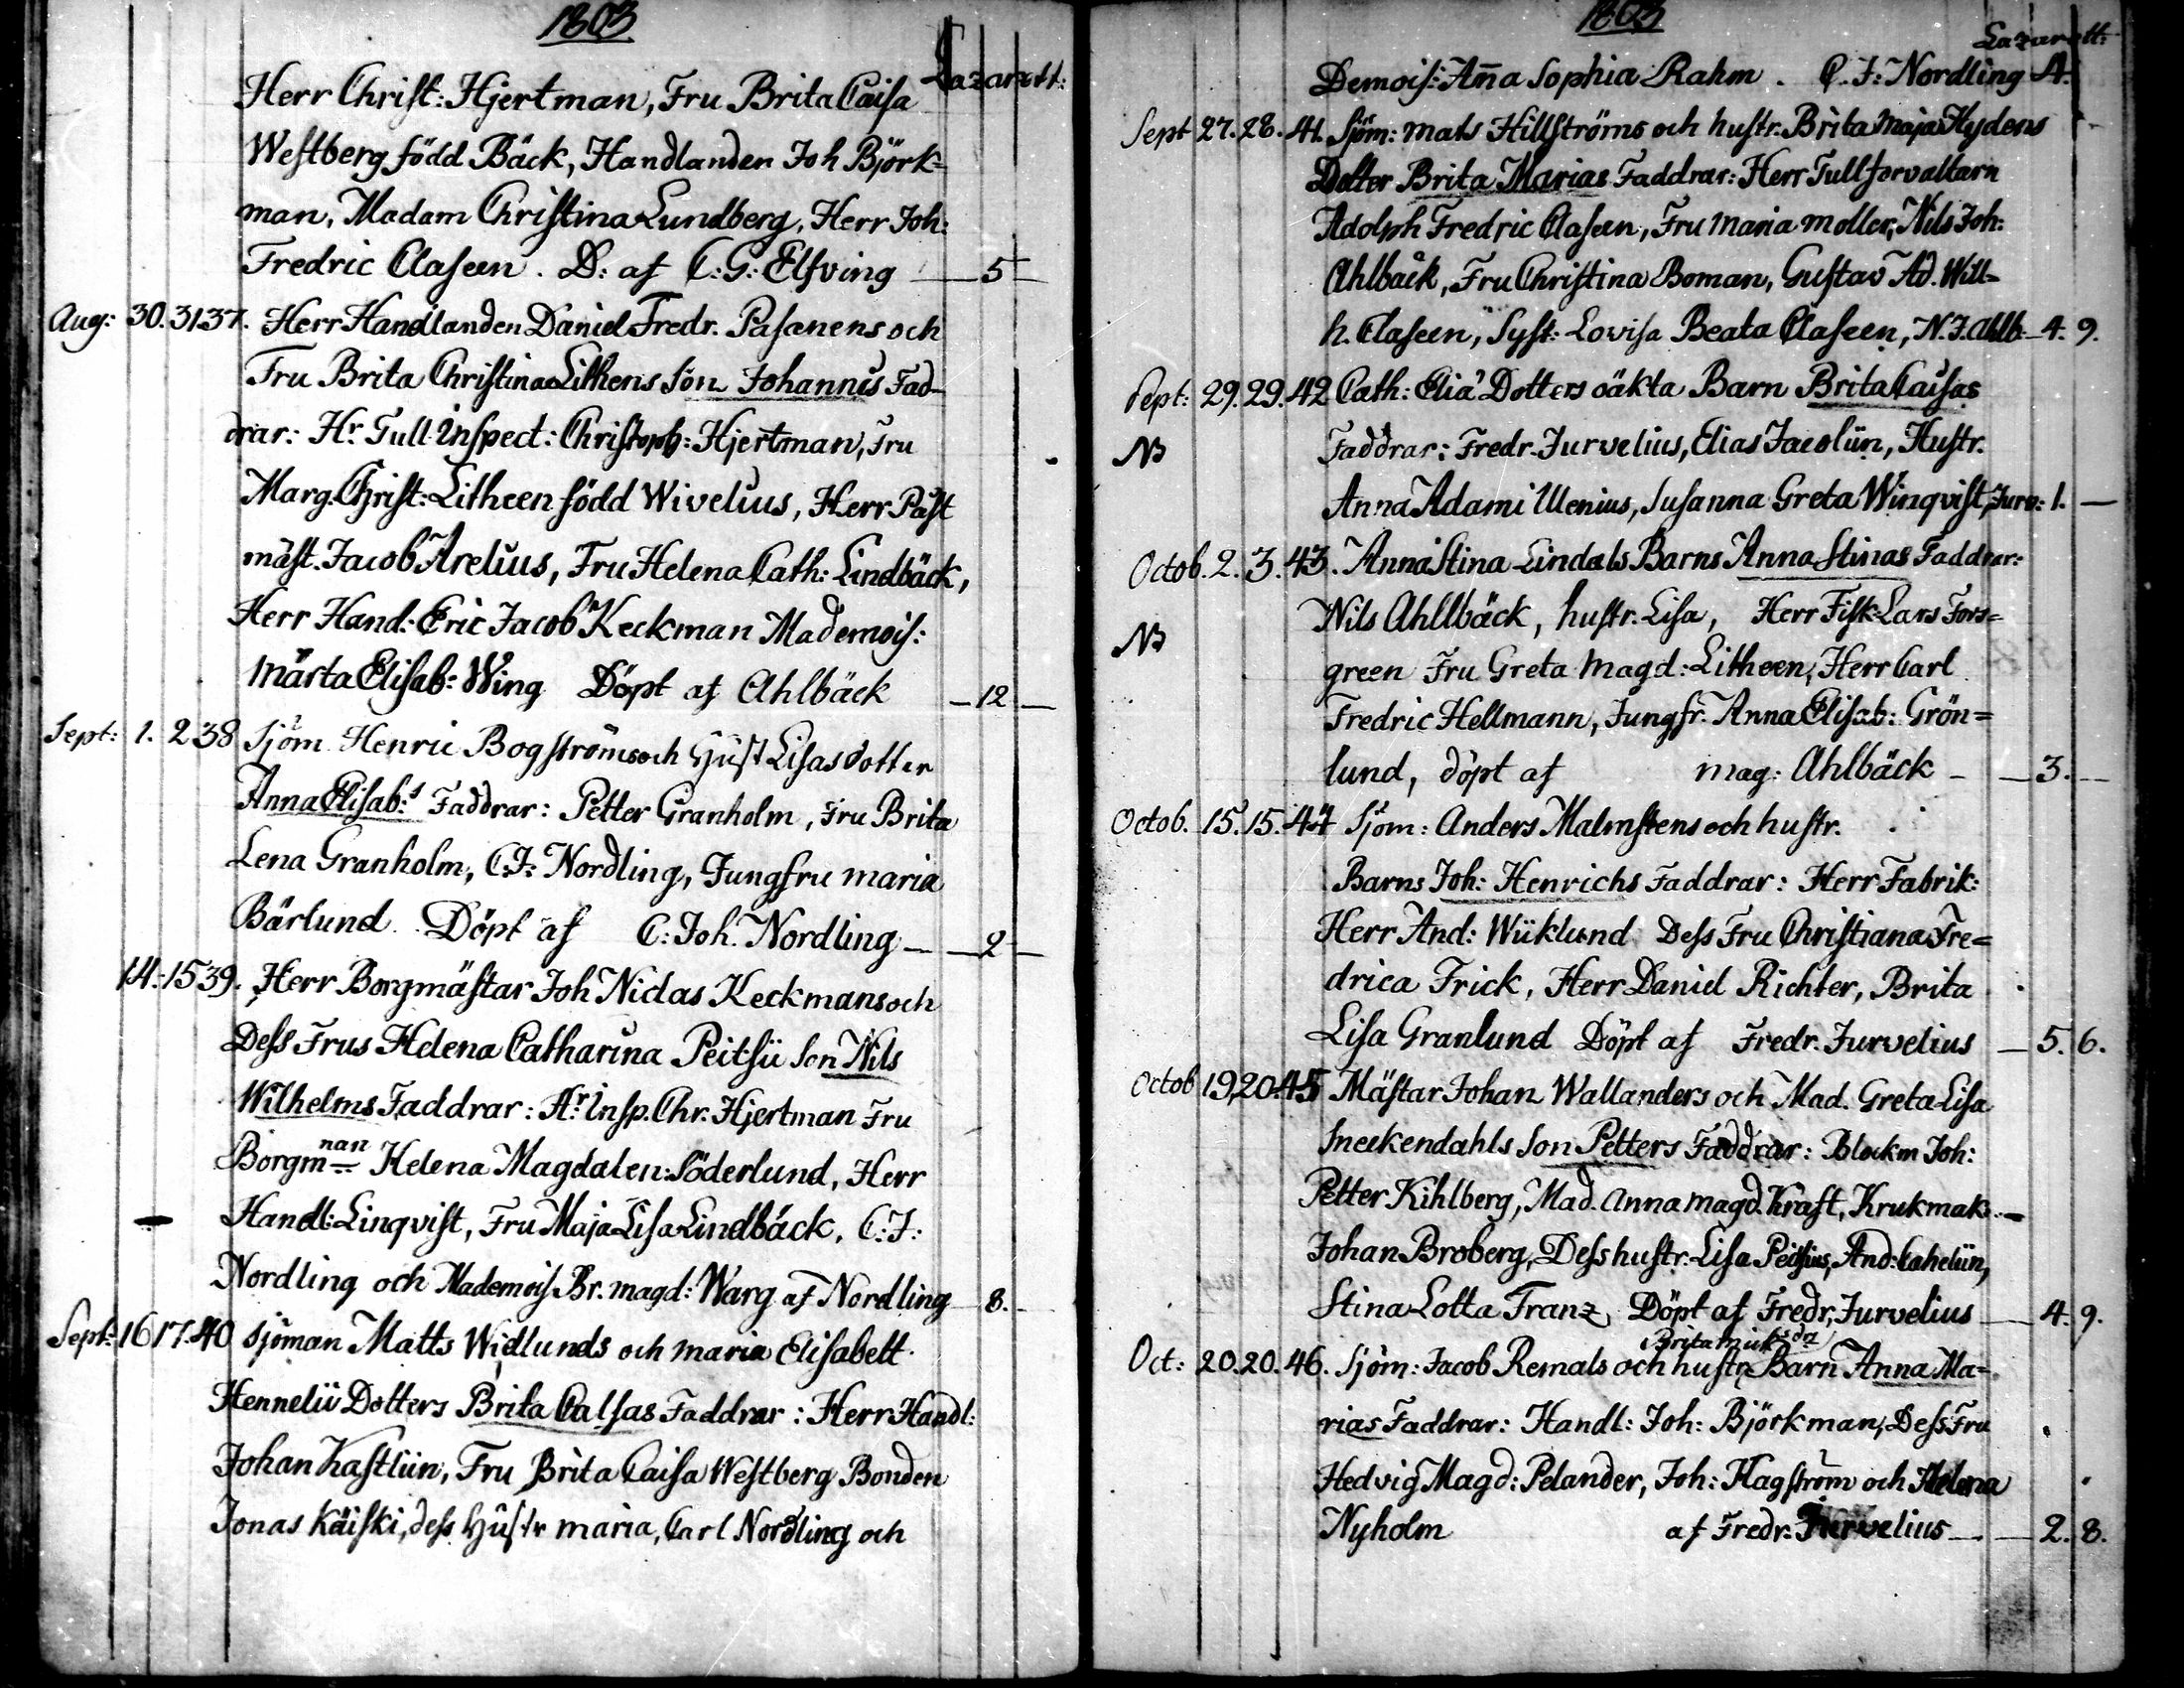 1803
Lazarett:
Herr Christ: Hjertman, Fru Brita Caisa
Westberg född Bäck, Handlanden Joh Björk=
man, Madam Christina Lundberg, Herr Joh:
Fredric Claseen. D: af C: G: Elfving — 5 —
Aug: 30. 31. 37. Herr Handlanden Daniel Fredr. Pasanens och
Fru Brita Christina Lithens Son Johannes Fad-
drar: Hr. Tull Inspect: Christoph: Hjertman, Fru
Marg. Christ: Litheen född Wivelius, Herr Påst
mäst. Jacob Arelius, Fru Helena Cath: Lindbäck,
Herr Hand: Eric Jacob Keckman Mademois:
Märta Elisab: Wing Döpt af Ahlbäck — 12 —
Sept: 1. 2 38 Sjöm Henric Bogströms och Hust Lisas dotter
Anna Elisab:s Faddrar: Petter Granholm, Fru Brita
Lena Granholm, C. J: Nordling, Jungfru maria
Bärlund. Döpt af C: Joh. Nordling — 2 —
14: 15 39. Herr Borgmästar Joh Niclas Keckmans och
Dess Frus Helena Catharina Peitsii Son Nils
Wilhelms Faddrar: Hr Insp. Chr. Hjertman Fru
Borgm nan Helena Magdalen: Söderlund, Herr
Handl: Linqvist, Fru Maja Lisa Lindbäck, C. J:
Nordling och Mademois Br. magd: Warg af Nordling 8.
Sept: 16 17. 40 Sjöman Matts Widlunds och maria Elisabett
Hennelii Dotters Brita Caisas Faddrar: Herr Handl:
Johan Kastliin, Fru Brita Caisa Westberg Bonden
Jonas Käiski, dess Hustr maria, Carl Nordling och
1803
Lazarett:
Demois: Anna Sophia Rahm. C. J: Nordling 4.
Sept 27. 28. 41. Sjöm: mats Hillströms och hustr. Brita Maja Hydens
Dotter Brita Marias Faddrar: Herr Tullforvaltarn
Adolph Fredric Claseen, Fru Maria moller, Nils Joh:
Ahlbäck, Fru Christina Boman, Gustav Ad. Will-
h. Claseen, Syst: Lovisa Beata Claseen, N. J. Ahlb — 4. 9.
Sept: 29. 29. 42 Cath: Elia Dotters oäkta Barn Brita Caisas
NB Faddrar: Fredr. Jurvelius, Elias Jacoliin, Hustr.
Anna Adami Ulenius, Susanna Greta Winqvist, Jurv: 1. —
Octob. 2. 3. 43. Anna Stina Lindals Barns Anna Stinas Faddrar:
NB Nils Ahllbäck, hustr. Lisa, Herr Fisk: Lars Fors=
green Fru Greta Magd: Litheen, Herr Carl
Fredric Hellmann, Jungfr. Anna Elisab: Grön=
lund, döpt af mag: Ahlbäck — 3. —
Octob. 15. 15. 44 Sjöm: Anders Malmstens och hustr.
Barns Joh: Henrichs Faddrar: Herr Fabrik:
Herr And: Wiiklund Dess Fru Christiana Fre=
drica Frick, Herr Daniel Richter, Brita
Lisa Granlund Döpt af Fredr. Jurvelius — 5. 6.
Octob 19. 20. 45 Mästar Johan Wallanders och Mad. Greta Lisa
Sneckendahls Son Petters Faddrar: Blockm Joh:
Petter Kihlberg, Mad. Anna Magd. Kraft, Krukmak: —
Johan Broberg, Dess hustr: Lisa Peitsius, And:
Stina Lotta Franz, Döpt af Fredr, Jurvelius — 4. 9.
Oct: 20. 20. 46. Sjöm: Jacob Remals och hustr, Barn Anna Ma=
rias Faddrar: Handl: Joh: Björkman, Dess Fru
Hedvig Magd: Pelander, Joh: Hagström och Helena
Nyholm af Fredr: Jurvelius — 2. 8.